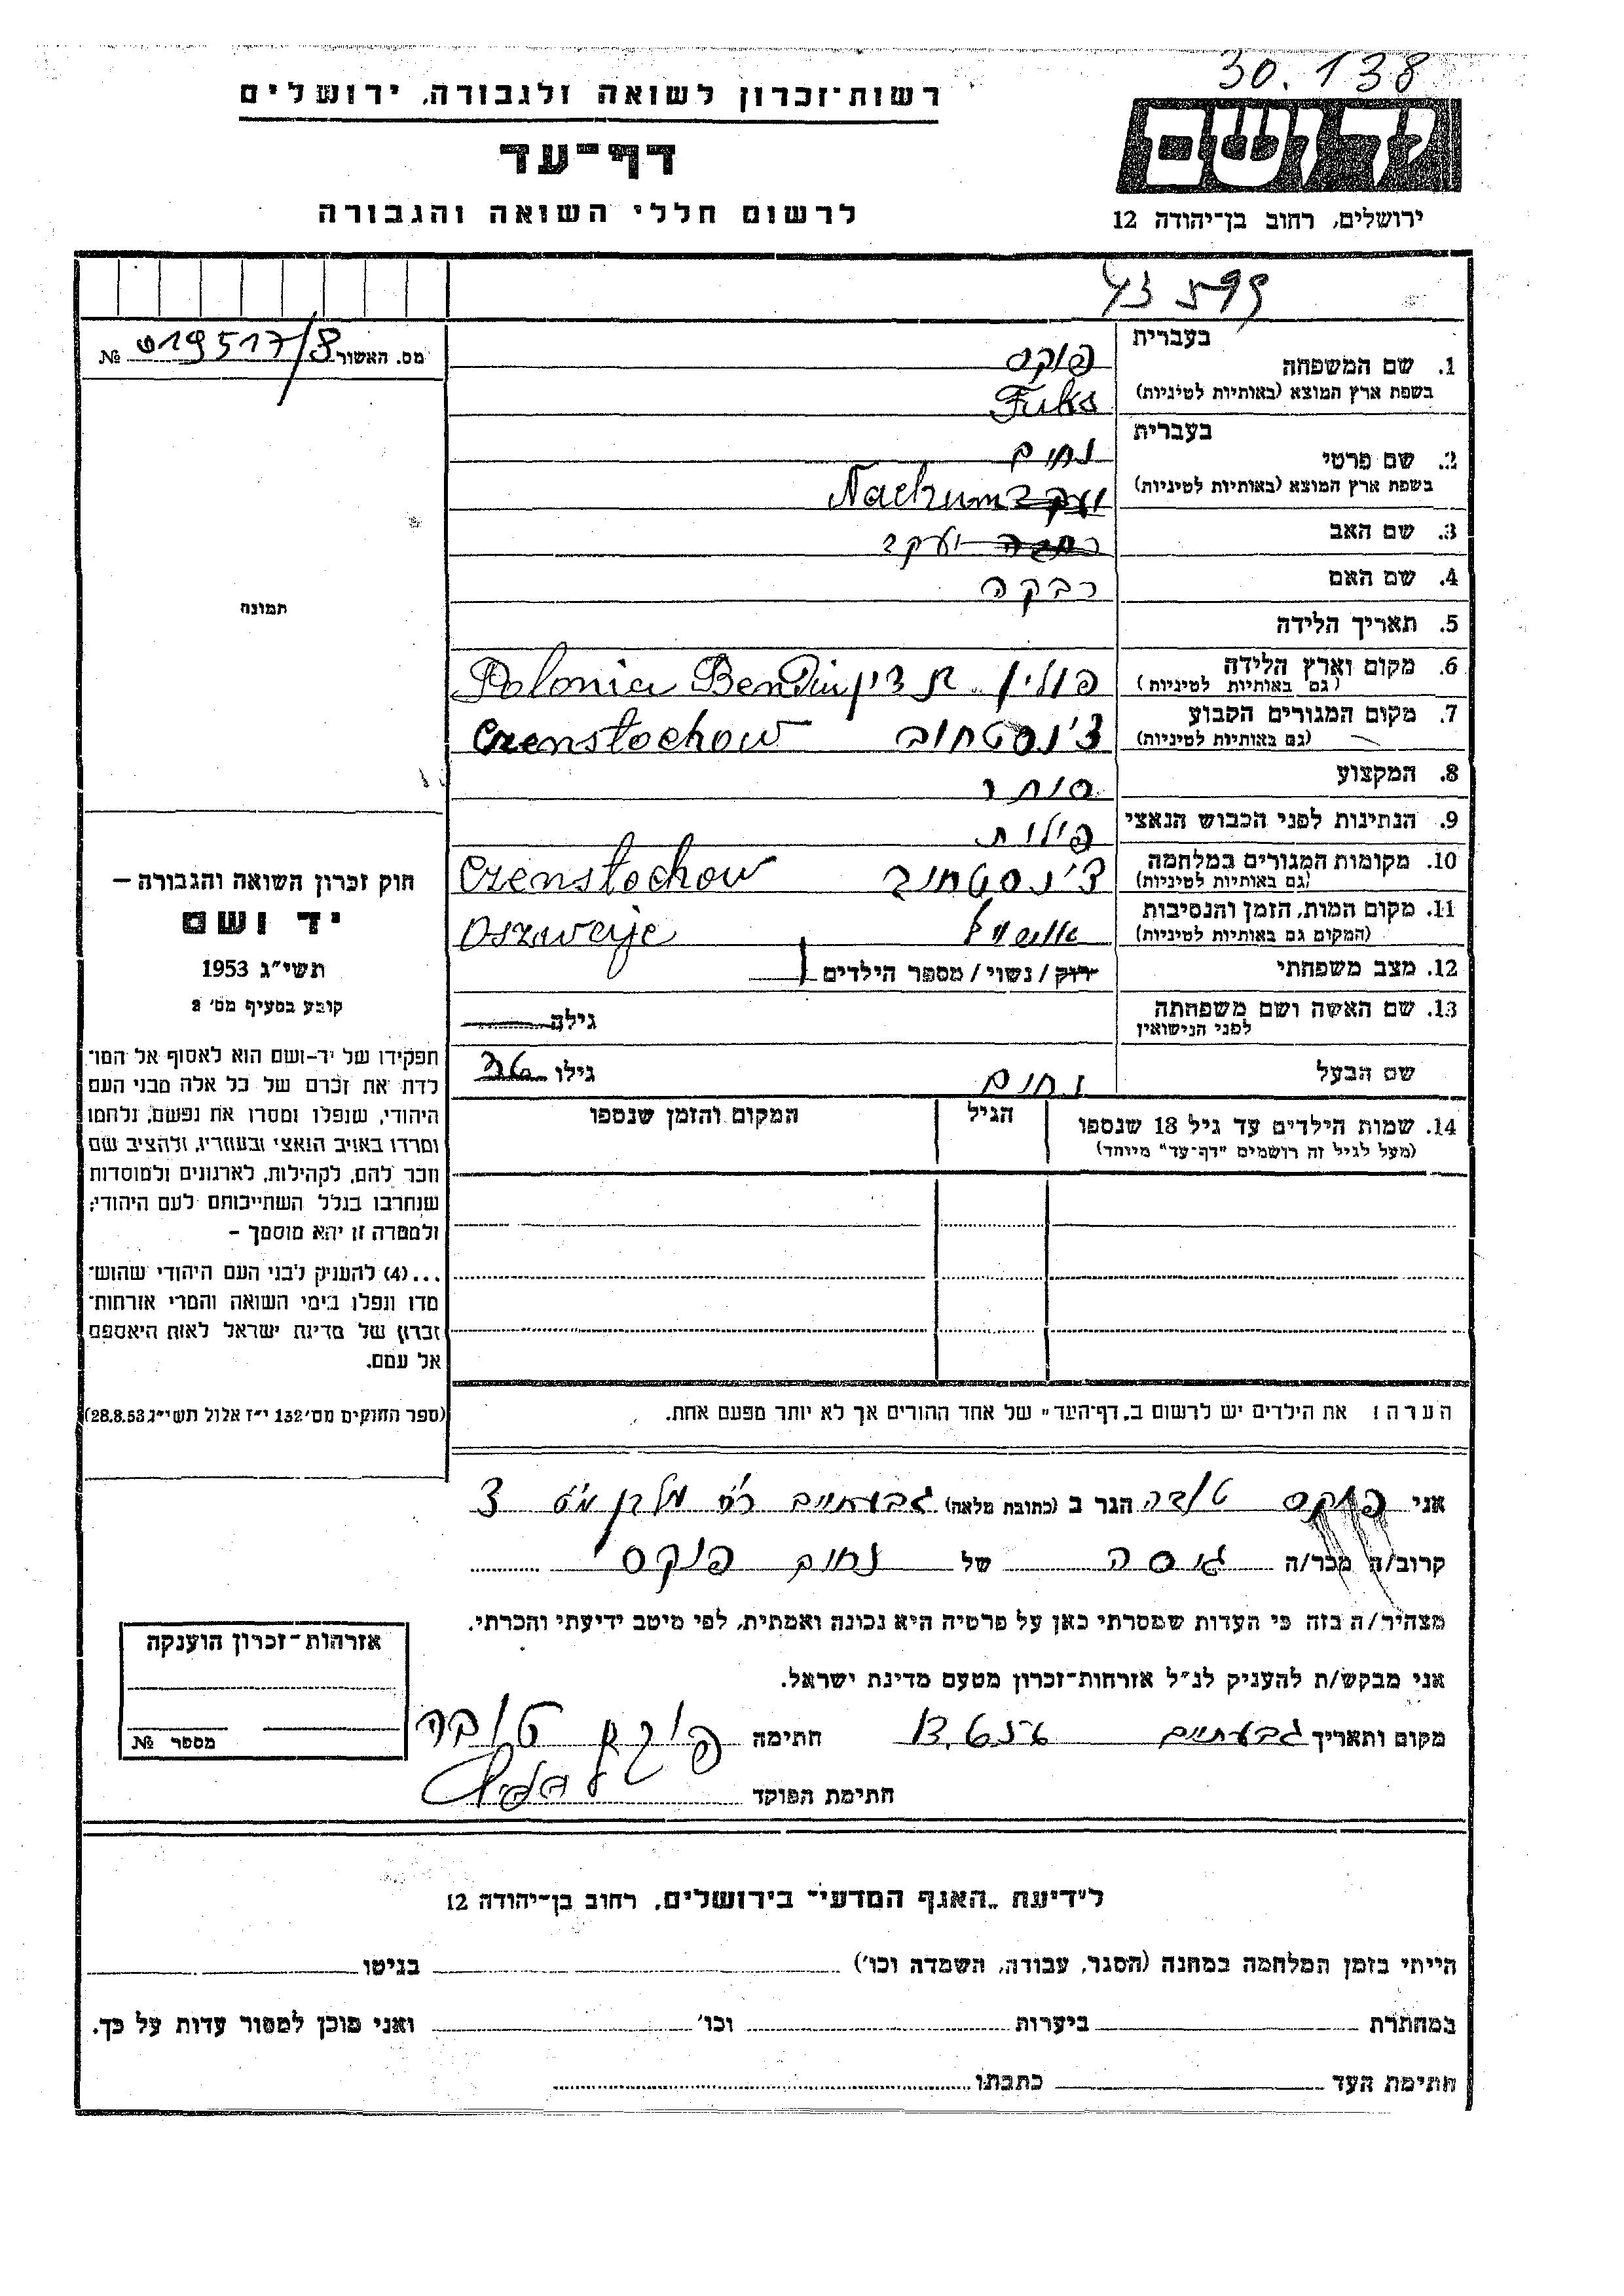 30.138
רשות־זכרון לשואה ולגבורה, ירושלים
דף־עד
לרשום חללי השואה והגבורה
יד ושם
ירושלים, רחוב בן־יהודה 12
מס. האשור 019517/8 №
בעברית
1. שם המשפחה פוקס
בשפת ארץ המוצא (באותיות לטיניות) Fuks
בעברית
2. שם פרטי נחום
בשפת ארץ המוצא (באותיות לטיניות) יעקב Nachum
3. שם האב יעקב
4. שם האם רבקה
5. תאריך הלידה
6. מקום וארץ הלידה פולין Polonia
(גם באותיות לטיניות)
7. מקום המגורים הקבוע צ'נסטחוב Czenstochow
(גם באותיות לטיניות)
8. המקצוע סוחר
9. הנתינות לפני הכבוש הנאצי פולות
10. מקומות המגורים במלחמה צ'נסטחוב Czenstochow
(גם באותיות לטיניות)
11. מקום המות, הזמן והנסיבות
(המקום גם באותיות לטיניות)
12. מצב משפחתי רוק / נשוי / מספר הילדים 1
13. שם האשה ושם משפחתה גילה
לפני הנישואין
שם הבעל נחום גילו
14. שמות הילדים עד גיל 18 שנספו הגיל המקום והזמן שנספו
(מעל לגיל זה רושמים "דף־עד" מיוחד)
הערה: את הילדים יש לרשום ב"דף־העד" של אחד ההורים אך לא יותר מפעם אחת.
תמונה
חוק זכרון השואה והגבורה —
יד ושם
תשי"ג 1953
קובע בסעיף מס' 2
תפקידו של יד־ושם הוא לאסוף אל המו־
לדת את זכרם של כל אלה מבני העם
היהודי, שנפלו ומסרו את נפשם, נלחמו
ומרדו באויב הנאצי ובעוזריו, ולהציב שם
וזכר להם, לקהילות, לארגונים ולמוסדות
שנחרבו בגלל השתייכותם לעם היהודי;
ולמטרה זו יהא מוסמך —
...(4) להעניק לבני העם היהודי שהוש־
מדו ונפלו בימי השואה והמרי אזרחות־
זכרון של מדינת ישראל לאות היאספם
אל עמם.
(ספר החוקים מס' 132 י"ז אלול תשי"ג 28.8.53)
אני פוקס הגר ב (כתובת מלאה) גבעתיים 3
קרוב/ה מכר/ה גיסה של נחום פוקס
מצהיר/ה בזה כי העדות שמסרתי כאן על פרטיה היא נכונה ואמתית, לפי מיטב ידיעתי והכרתי.
אני מבקש/ת להעניק לנ"ל אזרחות־זכרון מטעם מדינת ישראל.
מקום ותאריך גבעתיים חתימה פוקס טובה
חתימת הפוקד
אזרחות־זכרון הוענקה
מספר №
לידיעת "האגף המדעי" בירושלים, רחוב בן־יהודה 12
הייתי בזמן המלחמה במחנה (הסגר, עבודה, השמדה וכו') בגיטו
במחתרת ביערות וכו' ואני מוכן למסור עדות על כך.
חתימת העד כתבתו